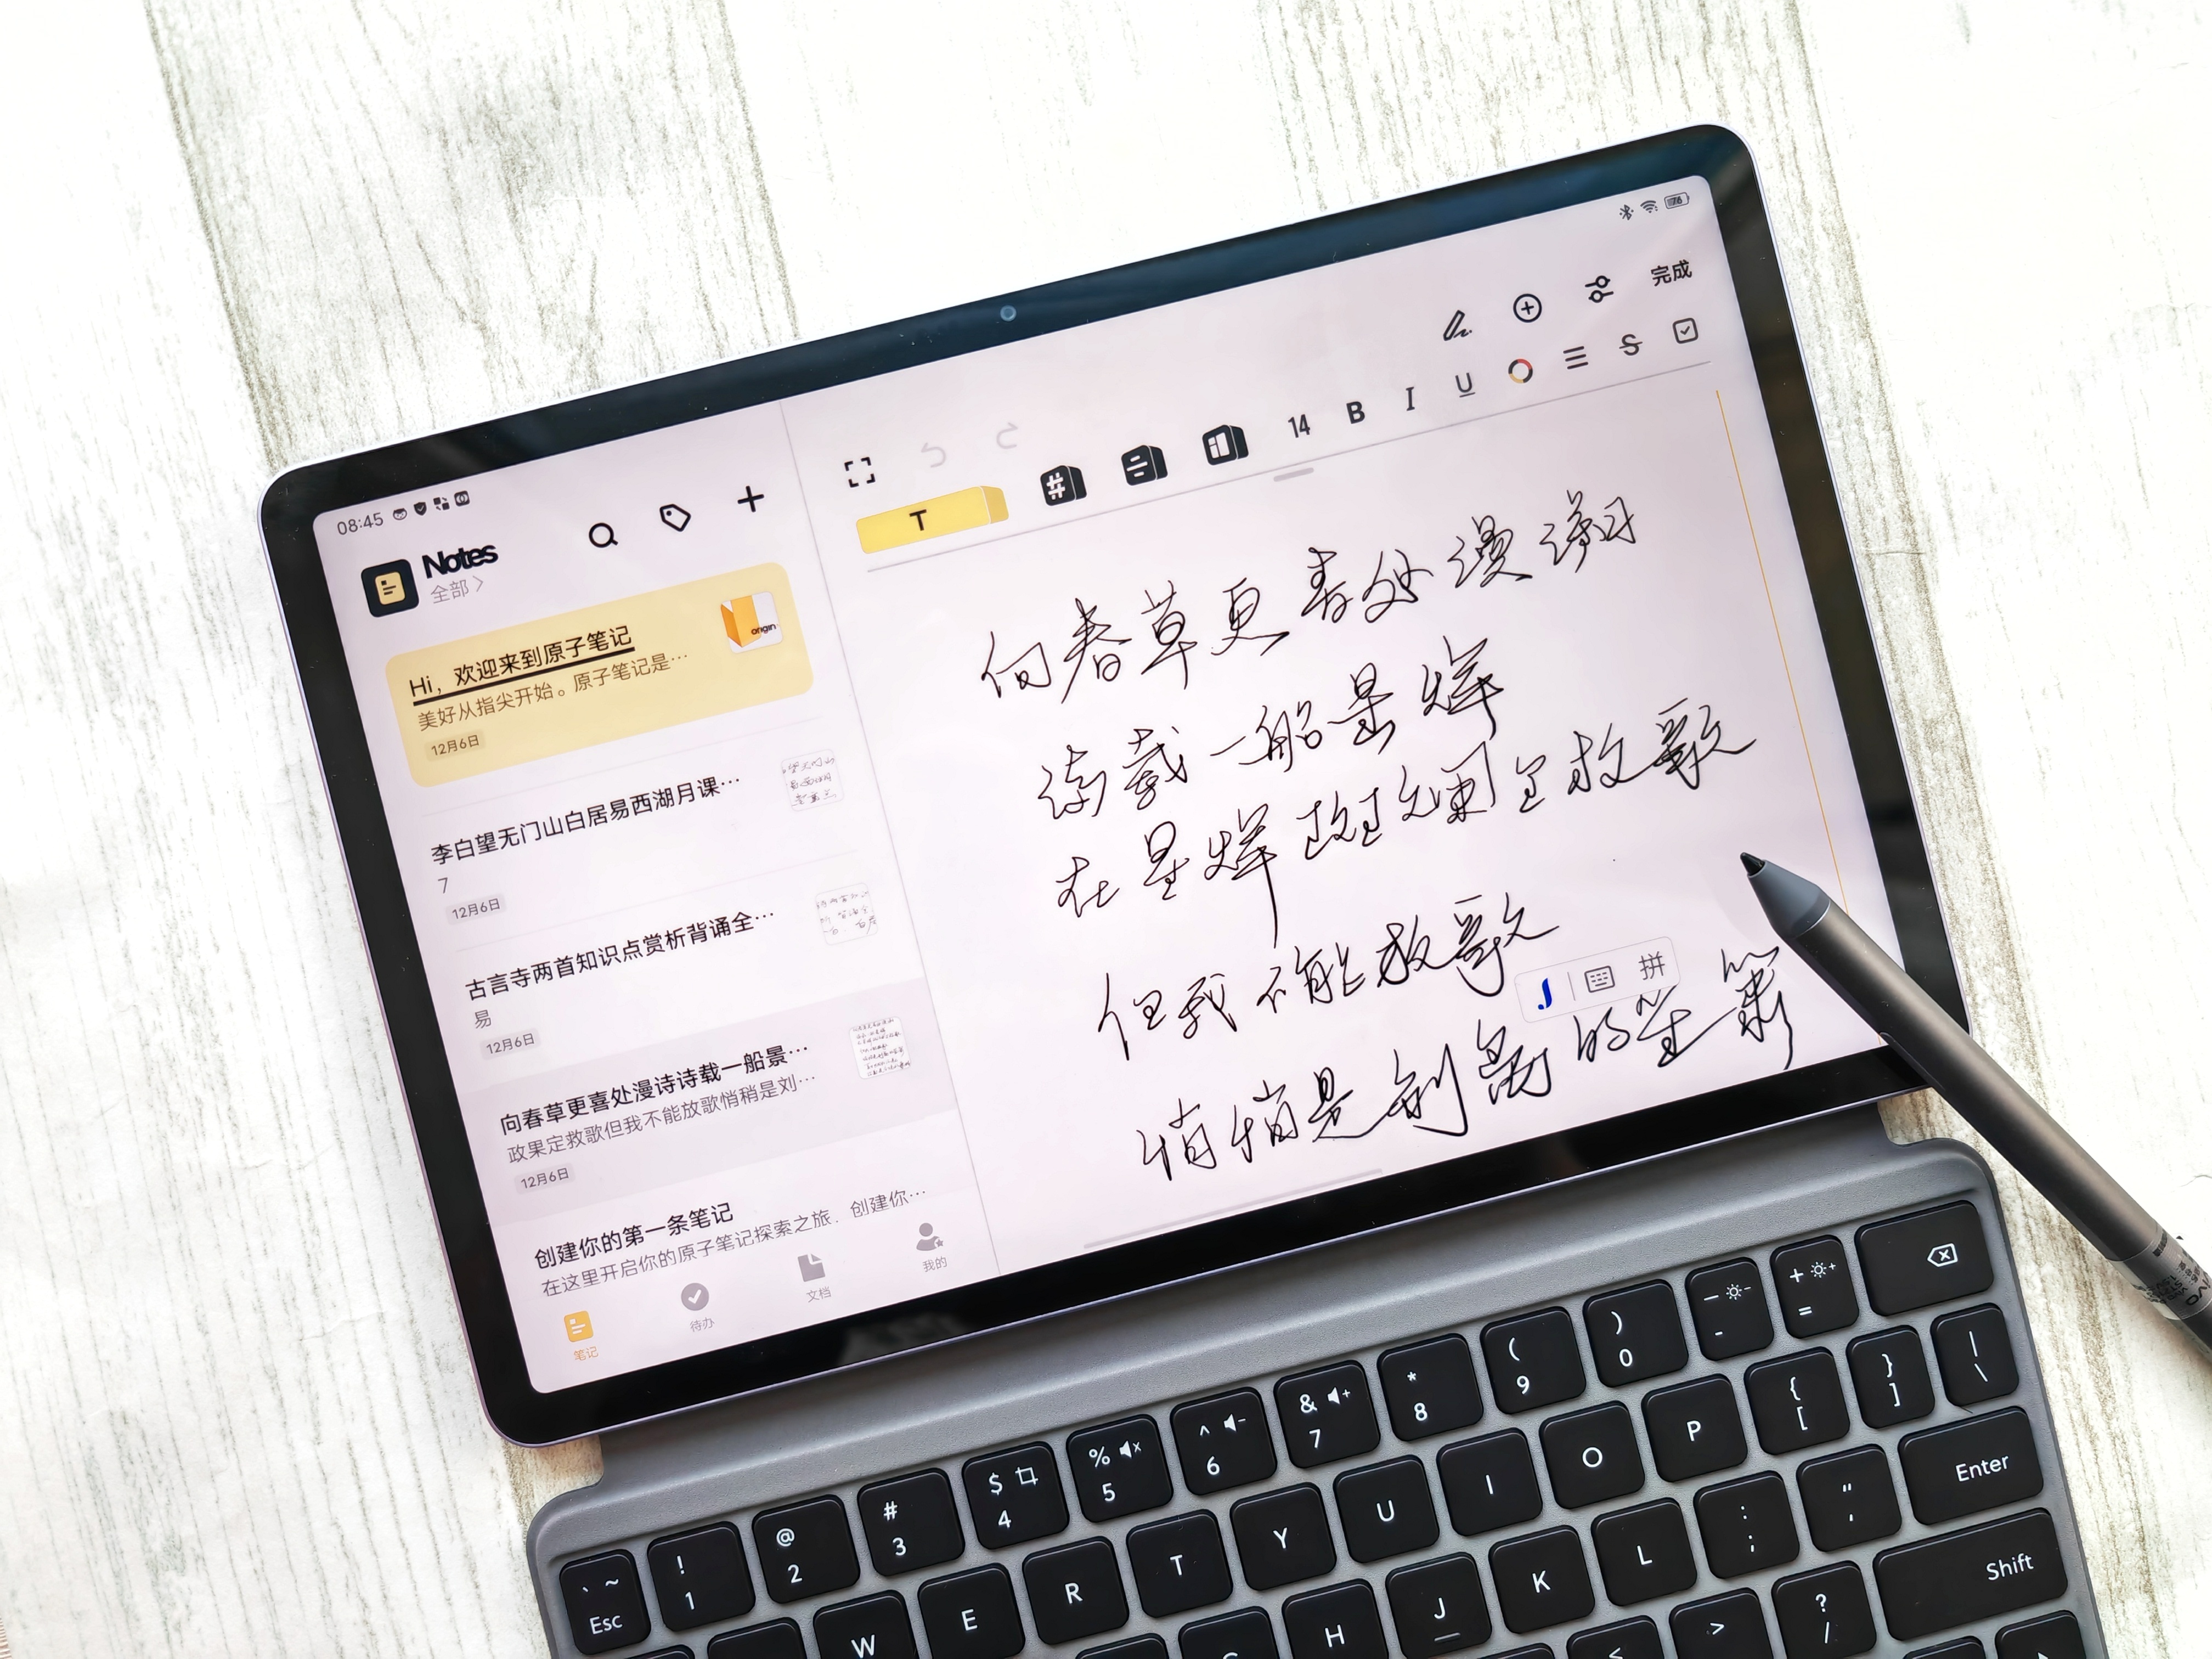 08:45
Notes
全部 >
Hi，欢迎来到原子笔记
美好从指尖开始。原子笔记是…
origin
12月6日
李白望无门山白居易西湖月课…
7
12月6日
古言寺两首知识点赏析背诵全…
易
12月6日
向春草更喜处漫诗诗载一船景…
政果定救歌但我不能放歌悄稍是刘…
12月6日
创建你的第一条笔记
在这里开启你的原子笔记探索之旅．创建你…
笔记
待办
文档
我的
完成
T
14 B I U S
向春草更青处漫溯
满载一船星辉
在星辉斑斓里放歌
但我不能放歌
悄悄是别离的笙箫
拼
vivo
- - + =
! 1 @ 2 # 3 $ 4 % 5 ^ 6 & 7 * 8 ( 9 ) 0
` ~ Esc
W E R T Y U I O P { [ } ] | \
H J K L : ; " ' Enter
< > ? / Shift